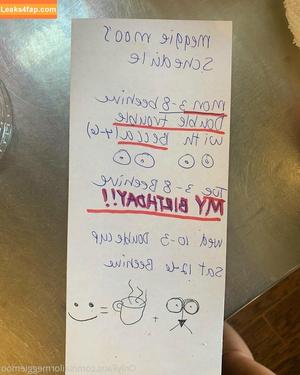 Leaks4fap.com
Meggie moo's
Schedule
Mon 3-8 beehive
Double trouble
with Becca (4-6)
Tue 3-8 Beehive
MY BIRTHDAY!!
Wed 10-3 Double cup
Sat 12-6 Beehive
+ =
OnlyFans.com/sailormeggiemoo